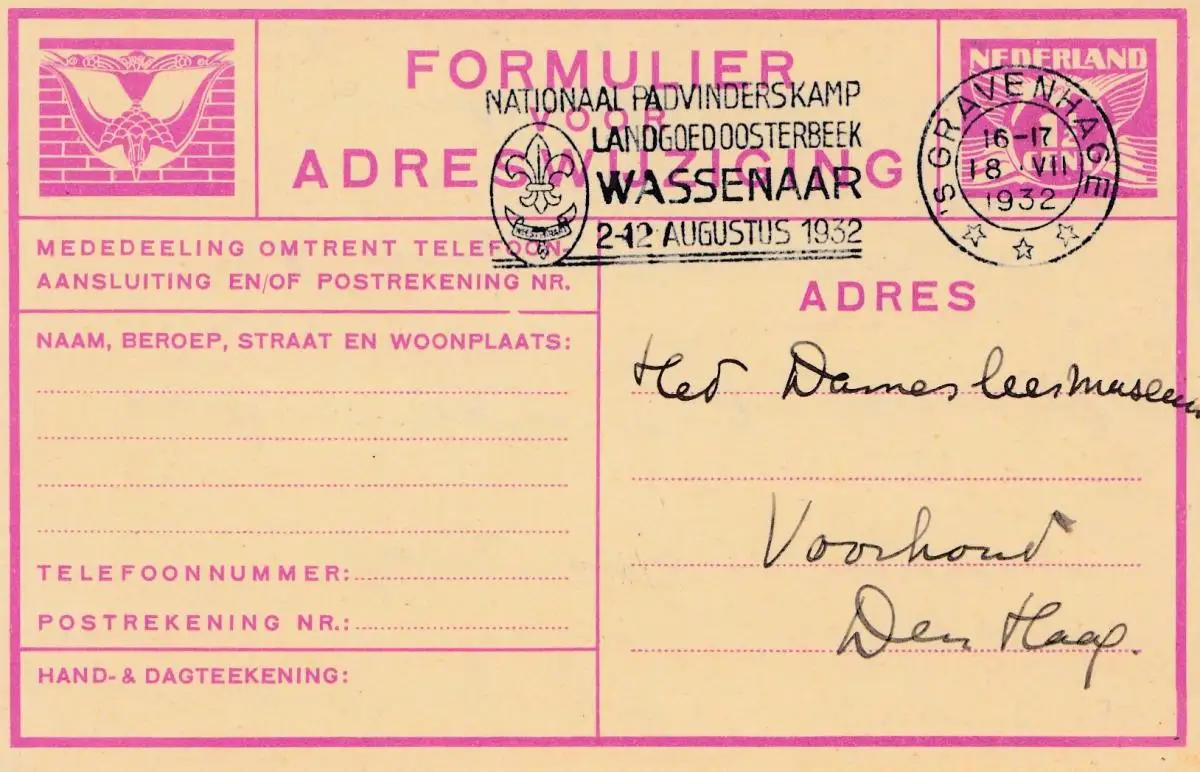 FORMULIER
VOOR
ADRESWIJZIGING
NATIONAAL PADVINDERSKAMP
LANDGOED OOSTERBEEK
WASSENAAR
2-12 AUGUSTUS 1932
NEDERLAND
'S GRAVENHAGE
16-17
18 VII
1932
MEDEDEELING OMTRENT TELEFOON-
AANSLUITING EN/OF POSTREKENING NR.
NAAM, BEROEP, STRAAT EN WOONPLAATS:
TELEFOONNUMMER:
POSTREKENING NR.:
HAND- & DAGTEEKENING:
ADRES
Het Dames leesmuseum
Voorhout
Den Haag.